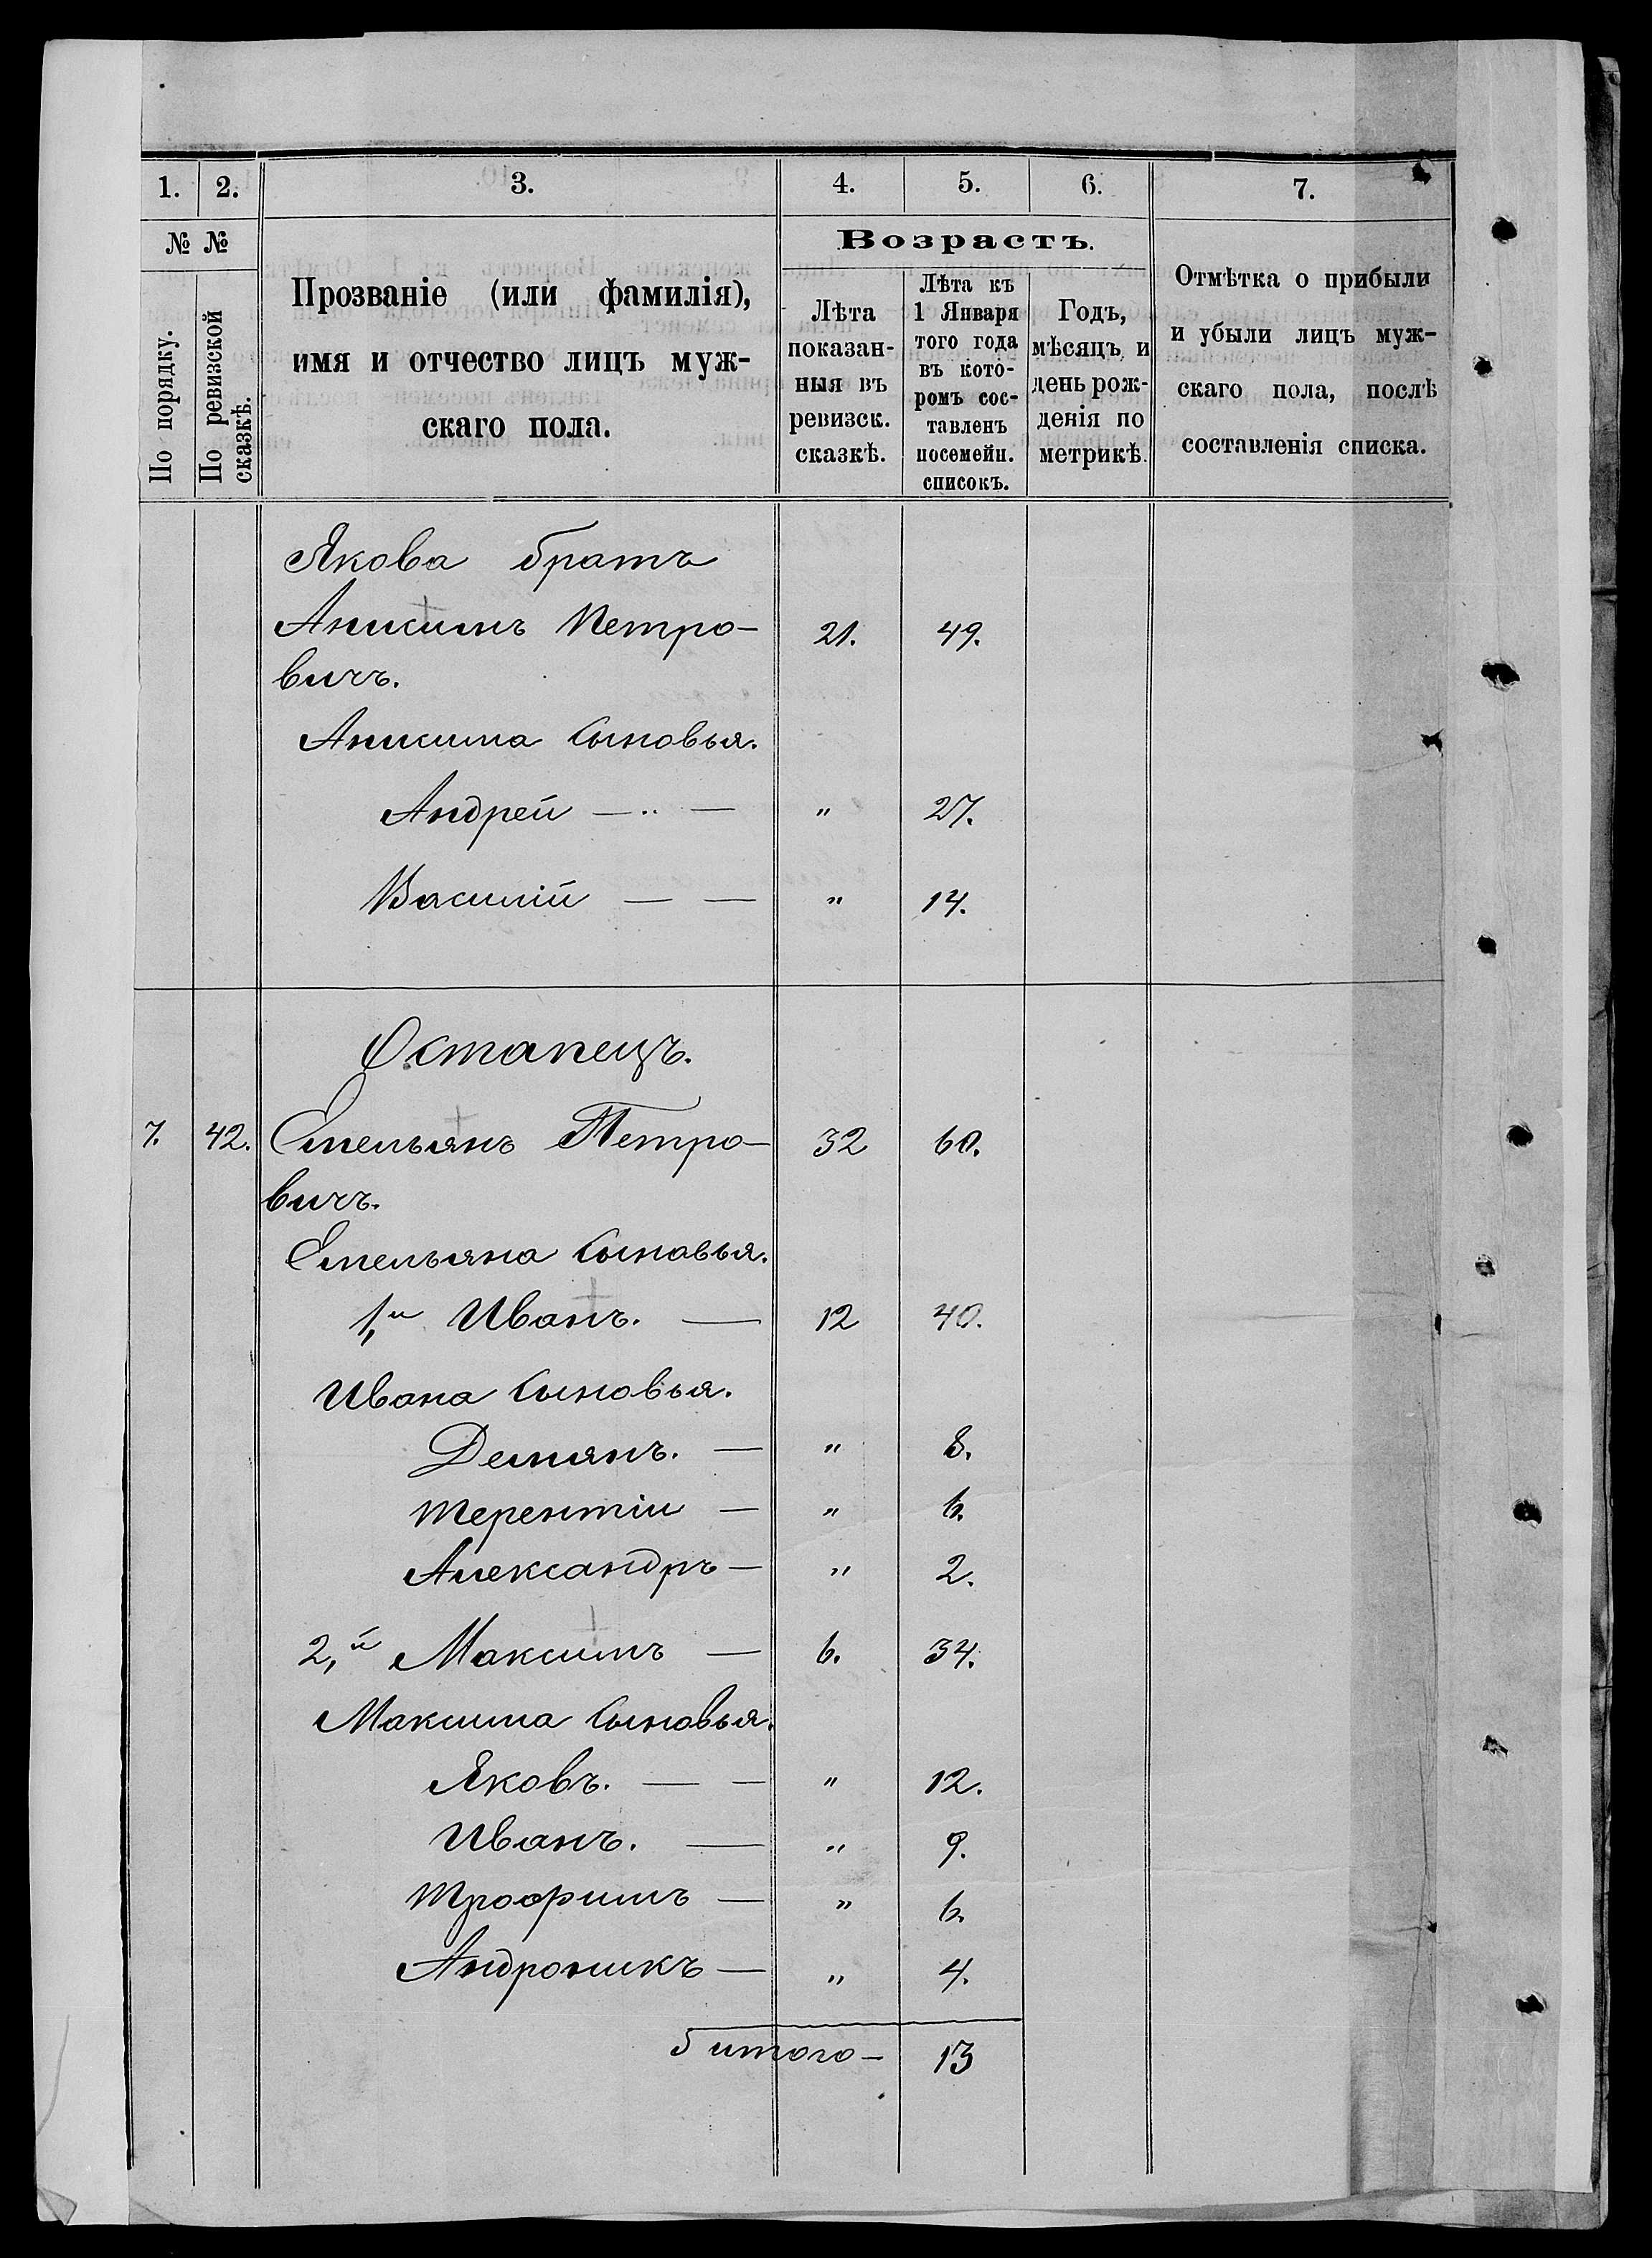 1. 2. 3. 4. 5. 6. 7.
№ №
По порядку.
По ревизской сказкѣ.
Прозваніе (или фамилія),
имя и отчество лицъ муж-
скаго пола.
Возрастъ.
Лѣта
показан-
ныя въ
ревизск.
сказкѣ.
Лѣта къ
1 Января
того года
въ кото-
ромъ сос-
тавленъ
посемейн.
списокъ.
Годъ,
мѣсяцъ и
день рож-
денія по
метрикѣ.
Отмѣтка о прибыли
и убыли лицъ муж-
скаго пола, послѣ
составленія списка.
Якова братъ
Анисимъ Петро- 21. 49.
вичъ.
Анисима Сыновья.
Андрей — „ — „ 27.
Василій — — „ 14.
Остапецъ.
7. 42. Емельянъ Петро- 32 60.
вичъ.
Емельяна Сыновья.
1,й Иванъ. — 12 40.
Ивана Сыновья.
Демянъ. — „ 8.
Терентіи — „ 6.
Александръ — „ 2.
2,й Максимъ — 6. 34.
Максима Сыновья.
Яковъ. — — „ 12.
Иванъ. — „ 9.
Трофимъ — „ 6.
Андроникъ — „ 4.
5 итого — 13